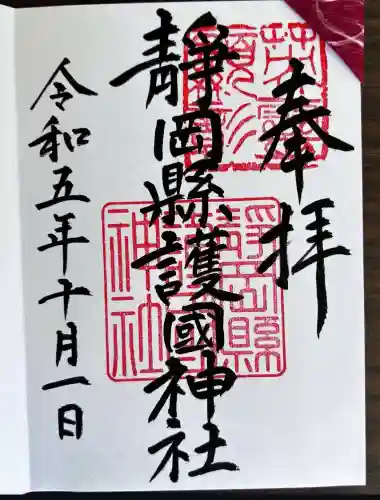 奉拝
靜岡縣護國神社
令和五年十月一日
靜岡縣
神社